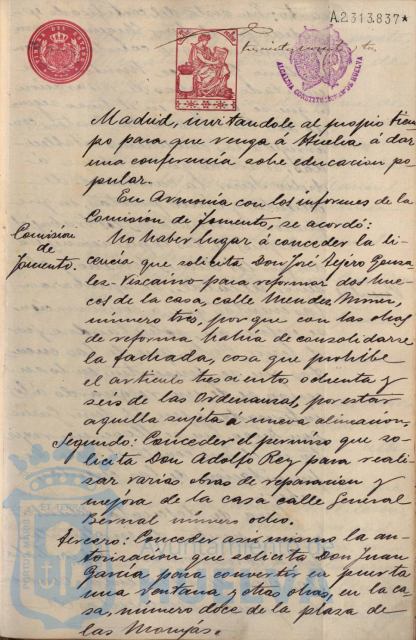 A.2.313.837*
ALCALDIA CONSTITUCIONAL DE HUELVA
Madrid, invitandole al propio tiem
po para que venga á Huelva á dar
una conferencia sobe educacion po
pular.
En Armonía con los informes de la
Comision de fomento, se acordó:
Comision
de
fomento.
No haber lugar á conceder la li
cencia que solicita Don José Tejero Gonza
les-Viscaino para reformar dos hue
cos de la casa, calle Mendez Nuñez,
número trés, por que con las obras
de reforma habria de consolidarse
la fachada, cosa que prohibe
el articulo trescientos ochenta y
seis de las Ordenanzas, por estar
aquella sujeta á nueva alineacion.
Segundo: Conceder el permiso que so-
licita Don Adolfo Rey para reali
zar varias obras de reparacion y
mejora de la casa calle General
Bernal número ocho.
Tercero: Conceder asi mismo la au-
torizacion que solicita Don Juan
García para convertir en puerta
una ventana y otras obras, en la ca-
sa, número doce de la plaza de
las Monjas.